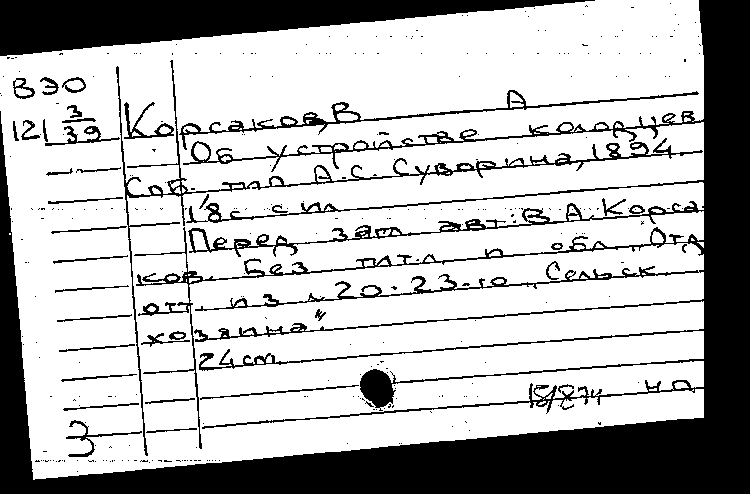 ВЭО
121 3/39
Корсаков, В А
Об устройстве колодцев
Спб. тип А.С. Суворина, 1894.
18 с. с ил
Перед загл. авт: В.А. Корса
ков. Без тит.л. и обл. "Отд
отт. из № 20-23-го "Сельск.
хозяина".
24 cm.
15/874 НП
3